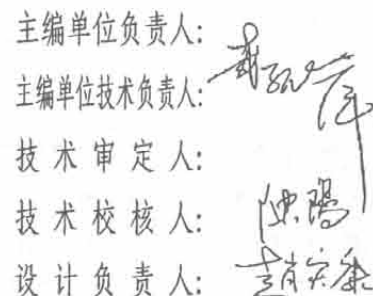 主编单位负责人:
主编单位技术负责人:
技术审定人:
技术校核人: 陈阳
设计负责人: